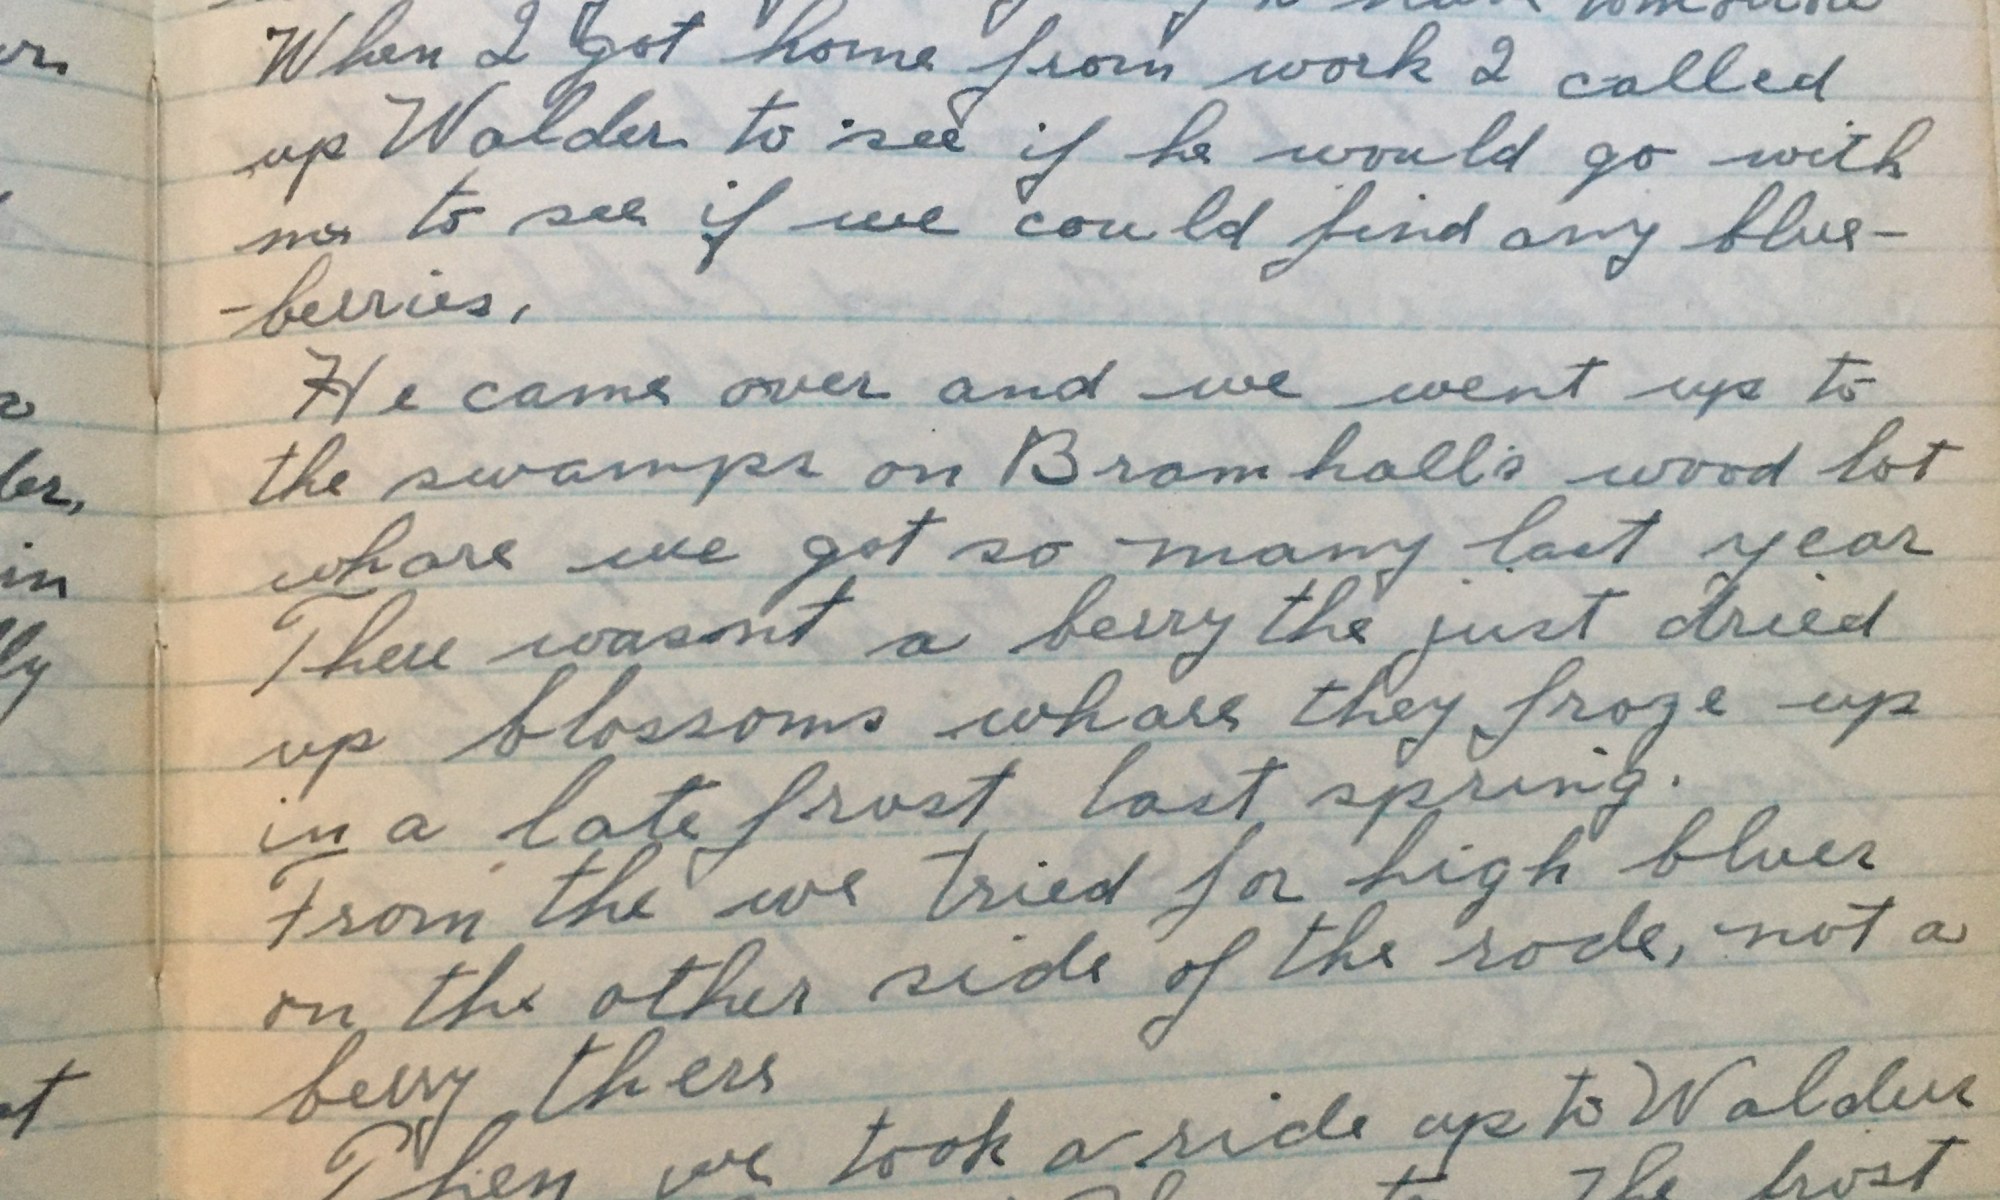 When I got home from work I called
up Walder to see if he would go with
me to see if we could find any blue-
-berries,
He came over and we went up to
the swamps on Bramhall's wood lot
whare we got so many last year
There wasnt a berry the just dried
up blossoms whare they froze up
in a late frost last spring.
From the we tried for high blues
on the other side of the rode, not a
berry there
Then we took a ride up to Walder
the frost